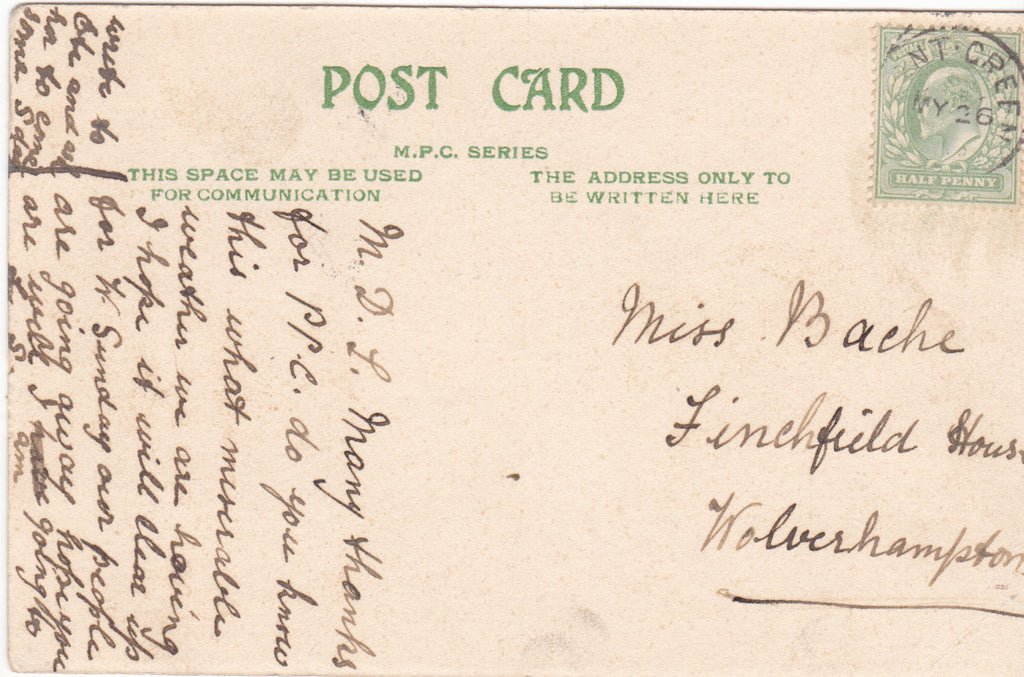 POST CARD
M.P.C. SERIES
THIS SPACE MAY BE USED
FOR COMMUNICATION
THE ADDRESS ONLY TO
BE WRITTEN HERE
NT·GREEN
MY 26
HALF PENNY
Miss Bache
Finchfield House
Wolverhampton
M. D. L. Many thanks
for P.P.C. do you know
this what miserable
weather we are having
I hope it will clear up
for W. Sunday our people
are going away hope you
are well I am going to
write to
and
to come
some